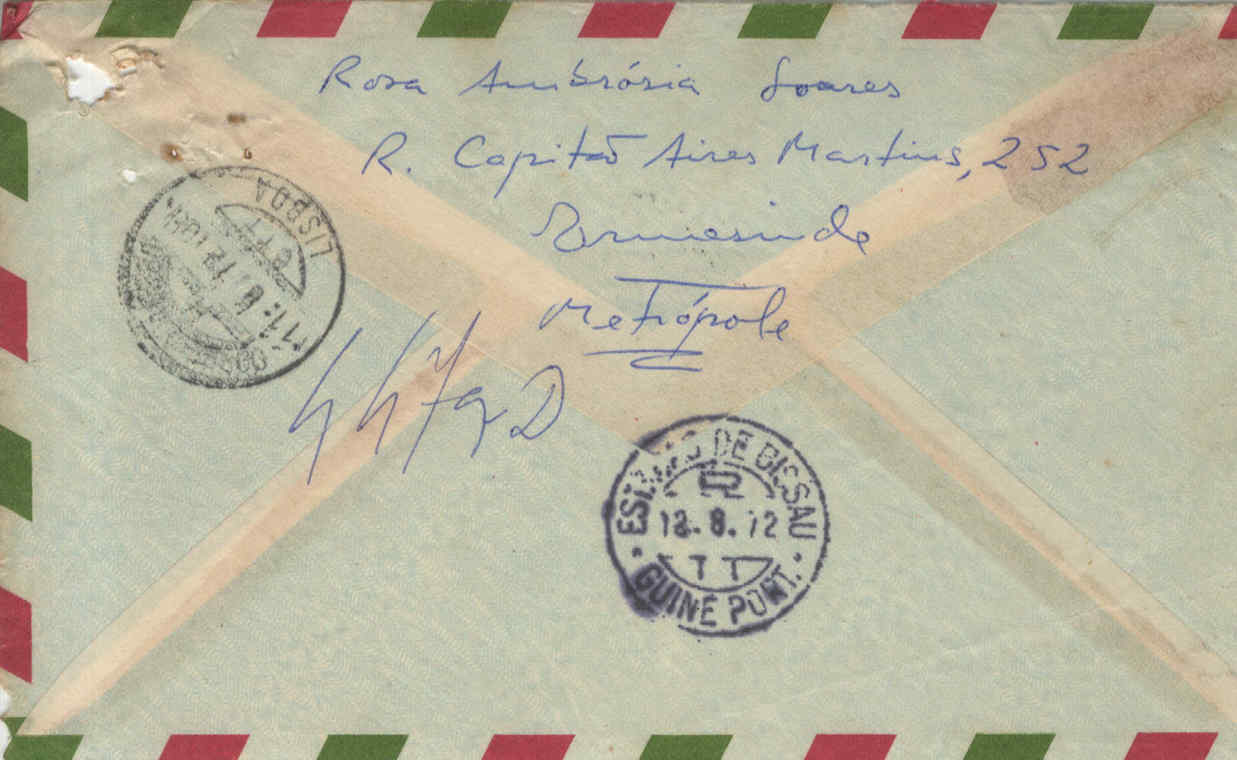 Rosa Ambrósia Soares
R. Capitão Aires Martins, 252
Ermesinde
Metrópole
LISBOA
CTT
DE BISSAU
8.72
TT
GUINÉ PORT.